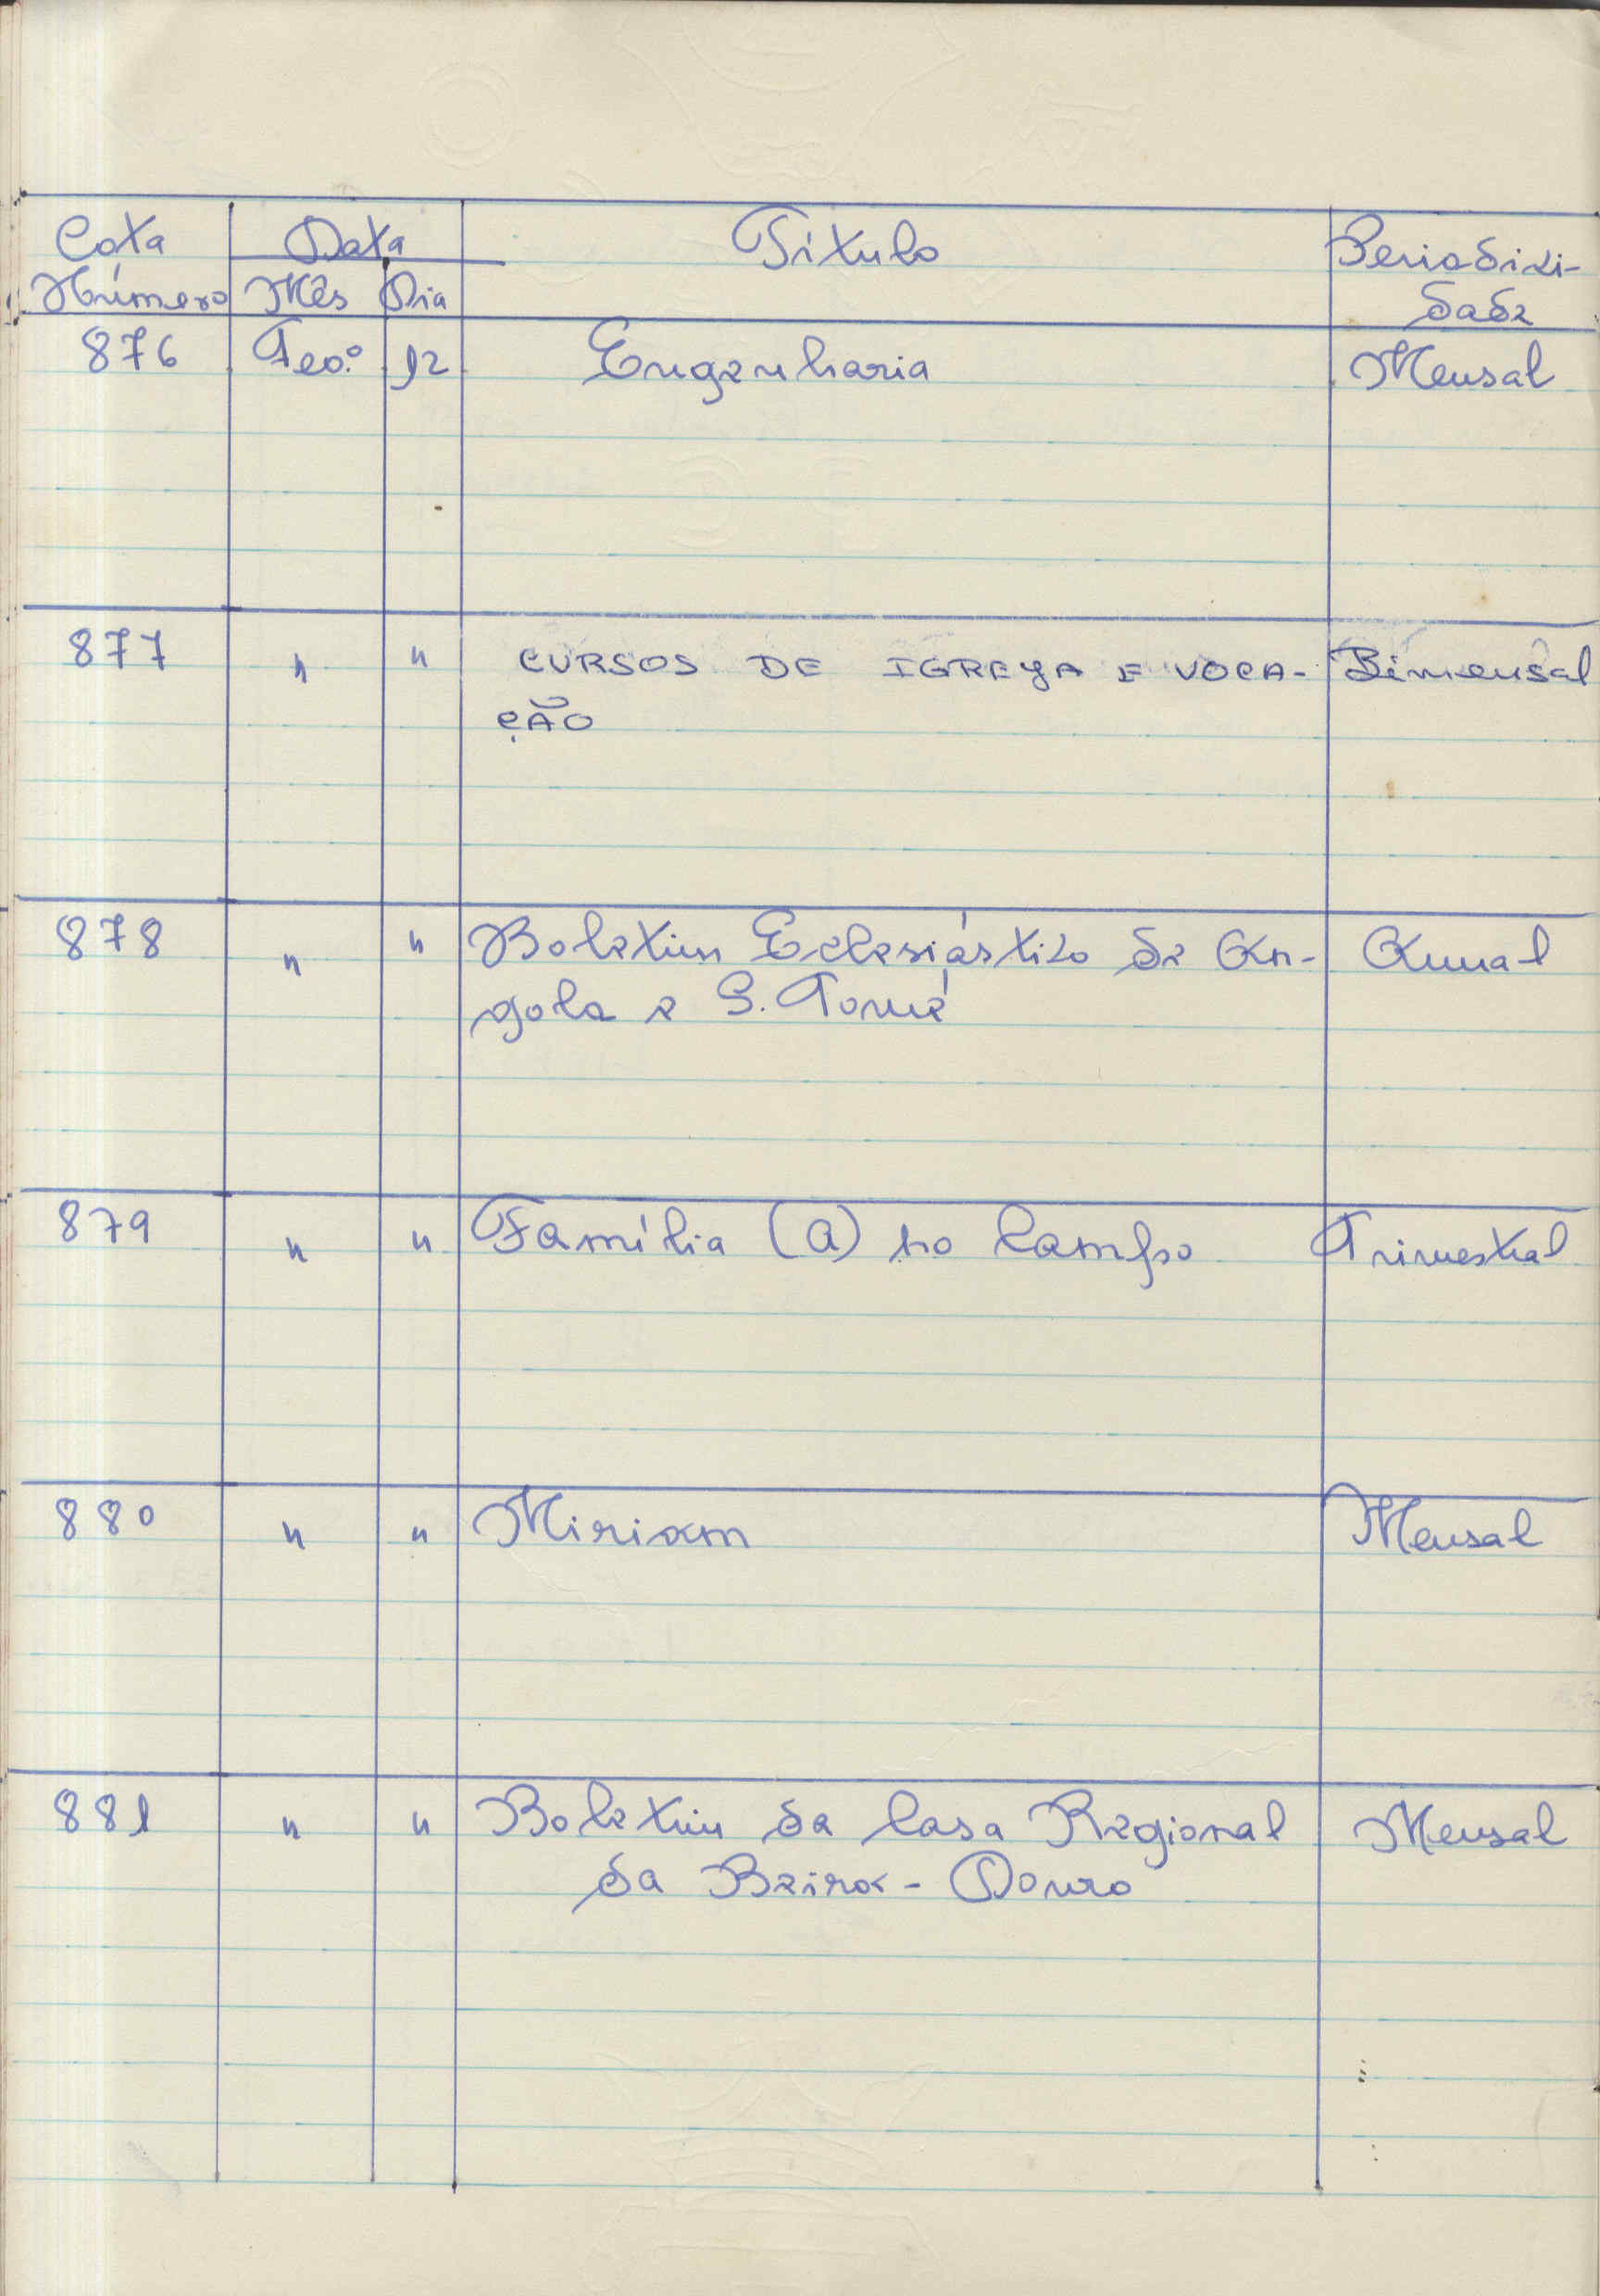 Cota Data Título Periodici-
Número Mês Dia dade
876 12 Engenharia Mensal
877 " " CURSOS DE IGREJA E VOCA- Bimensal
ÇÃO
878 " " Boletim Eclesiástico de An- Anual
gola e S. Tomé
879 " " Família (A) no Campo Trimestral
880 " " Miriam Mensal
881 " " Boletim da Casa Regional Mensal
da Beira - Douro